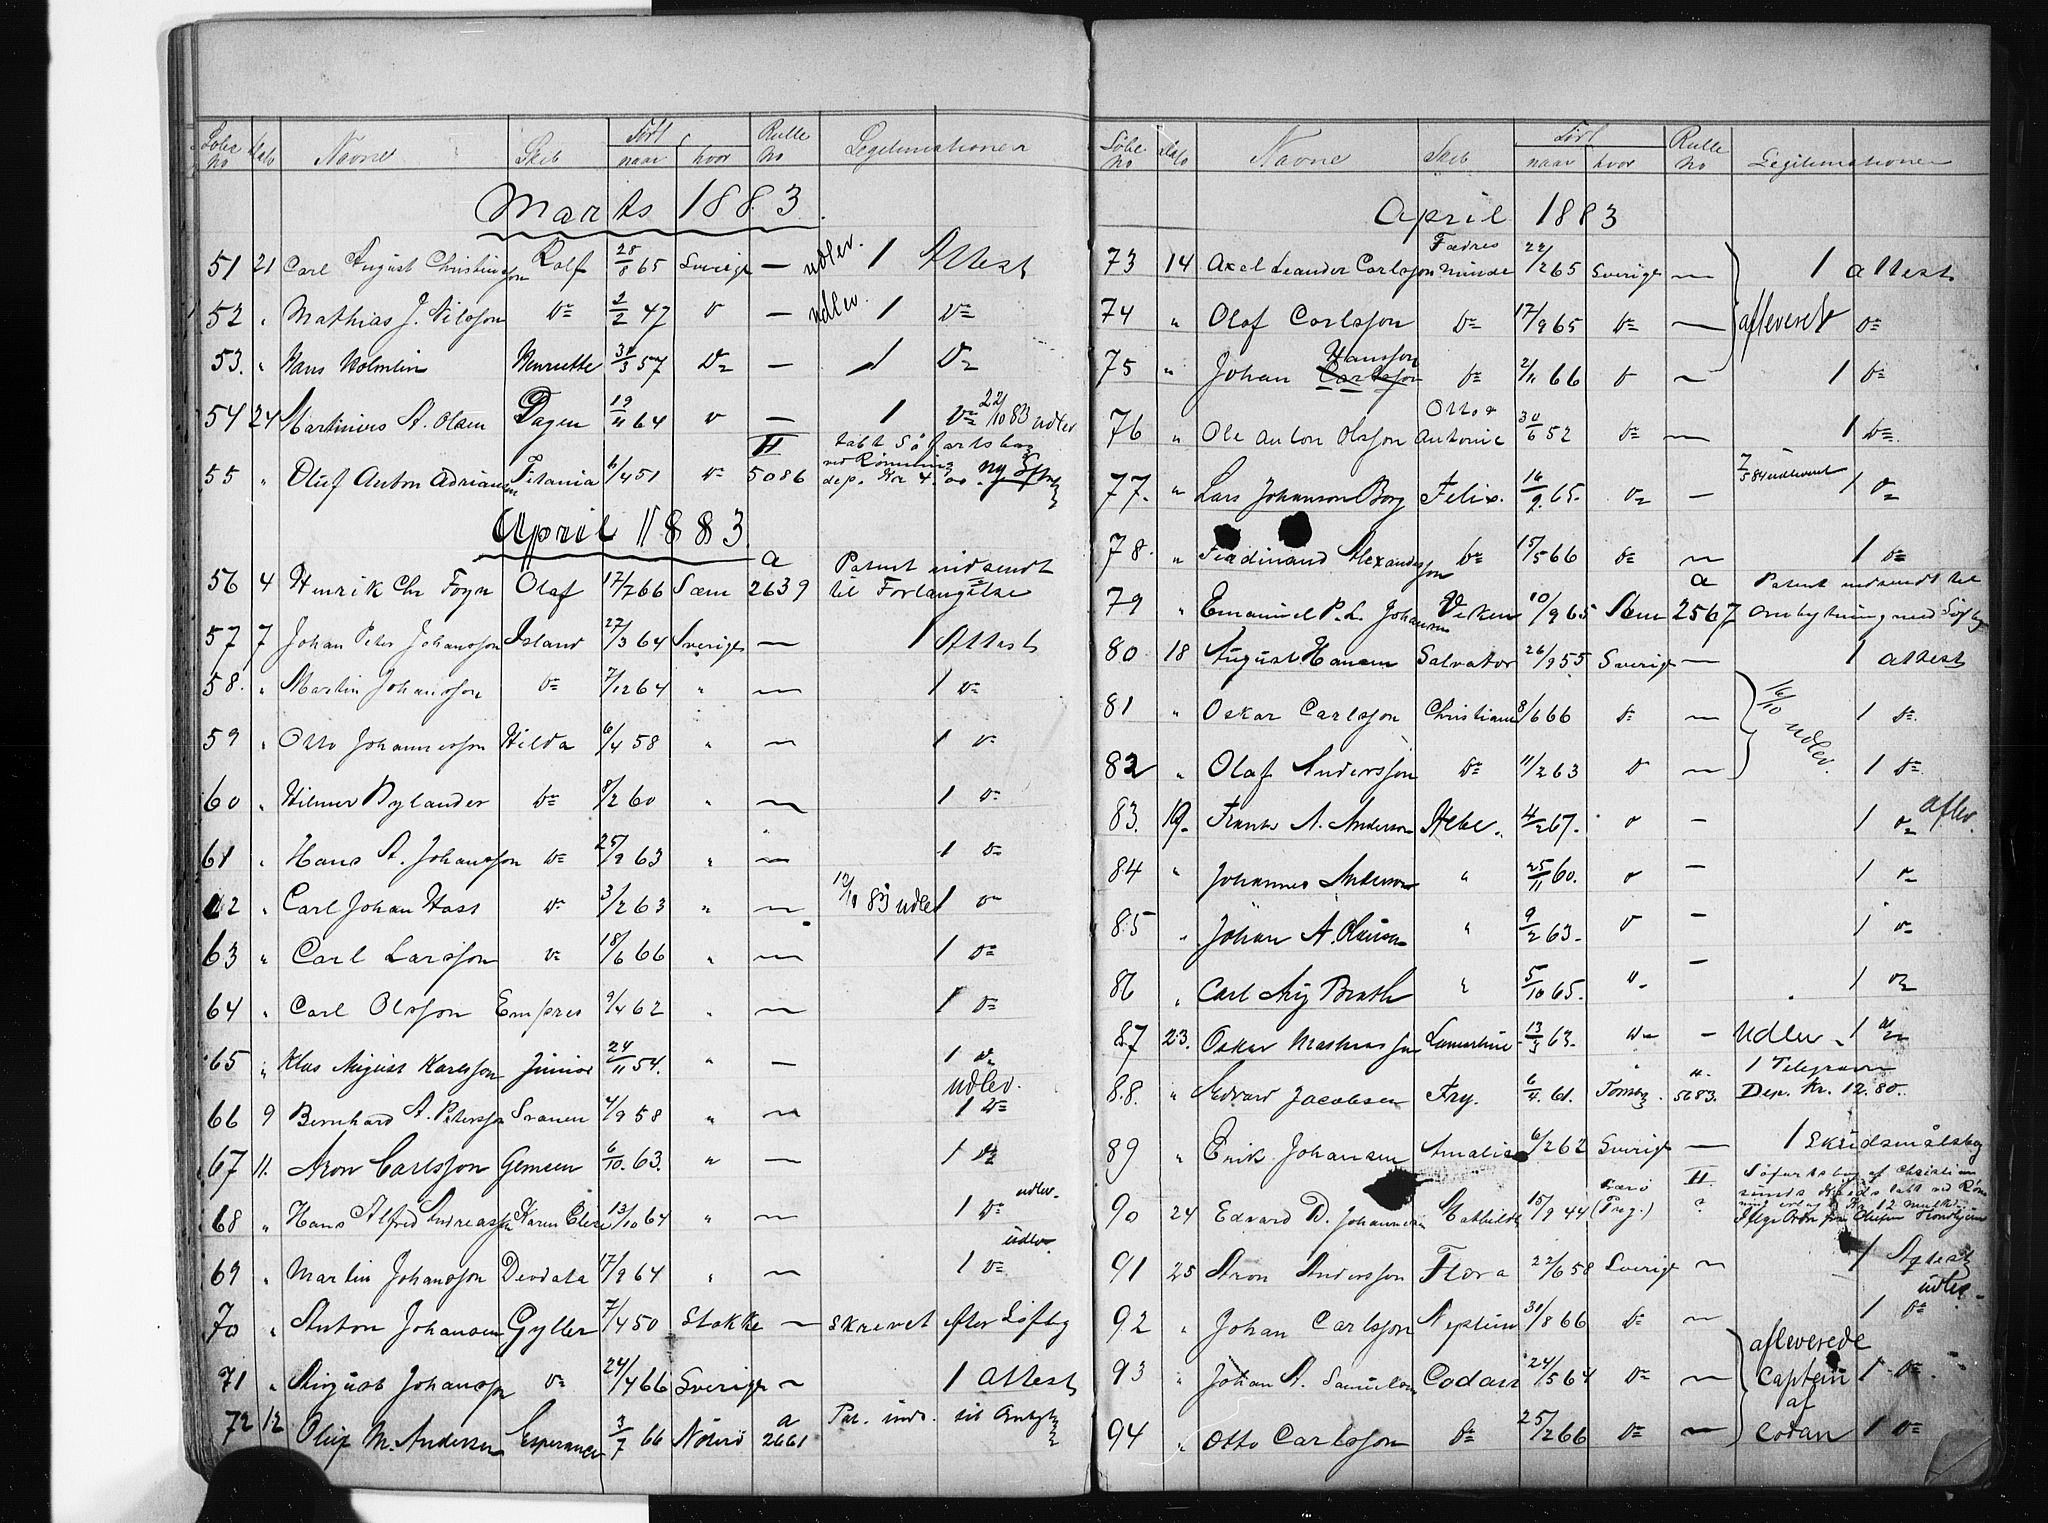 Løbe No Dato Navne Skib Født naar hvor Rulle No Legitimationer
Marts 1883
51 21 Carl August Christiansson Rolf 28/8 65 Sverige — udlev. 1 Attest
52 " Mathias J. Nilsson Do 2/2 47 Do — udlev. 1 Do
53. " Hans Holmlin Henriette 31/3 57 Do — 1 Do
54 24 Martinius A. Olsen Dagen 19/11 64 Do — 1 Do 22/10 83 udlev
55 " Oluf Anton Adriansen Titania 6/4 51 Do II 5086 tabt Søfartsbog
dep. Kr 4.00
April 1883
56 4 Henrik Chr Foyn Olaf 17/7 66 Sæm a 2639 Patent indsendt
til Forlængelse
57 7 Johan Peter Johansson Island 27/3 64 Sverige — 1 Attest
58. " Martin Johansson Do 7/12 64 " — 1 Do
59 " Otto Johannesson Hilda 6/4 58 " — 1 Do
60 " Hilmer Rylander Do 8/2 60 " — 1 Do
61 " Hans A. Johansson Do 25/9 63 " — 1 Do
62 " Carl Johan Hass Do 3/2 63 " — 83 udlev 1 Do
63 " Carl Larsson Do 18/6 66 " — 1 Do
64 " Carl Olsson Empres 9/4 62 " — 1 Do
65 " Klas August Karlsson Junior 24/11 54. " — 1 Do
udlev.
66 9 Bernhard A. Petersson Svanen 4/9 58 " — 1 Do
67 11. Aron Carlsson Gemsen 6/10. 63. " — 1 Do
68 " Hans Alfred Andreasson Karen Elise 13/10 64 " — 1 Do udlev.
69 " Martin Johansson Deodata 17/9 64 " — 1 Do udlev.
70 " Anton Johansen Gyller 7/4 50 Stokke — skrevet efter Søftbg
71 " August Johansson Do 24/4 66 Sverige — 1 Attest
72 12 Oluf M. Andersen Esperance 3/7 66 Nøterø a 2661 Pat. inds. til
Løbe No Dato Navne Skib Født naar hvor Rulle No Legitimationer
April 1883
73 14 Axel Leander Carlsson Fædres minde 22/2 65 Sverige — 1 Attest
74 " Olof Carlsson Do 17/9 65 Do — afleveret Do
75 " Johan Carlsson Hansson Do 2/11 66 Do — 1 Do
76 " Ole Anton Olsson Otto & Antonie 30/6 52 Do — 1 Do
77. " Lars Johanson Borg Felix. 16/9. 65. Do — 7/5 84 udleveret 1 Do
78. " Ferdinand Alexandersson Do 15/5 66 Do — 1 Do
79 " Emanuel P. L. Johansen Viken 10/9 65 Sem a 2567 Patent indsendt til
Ombytning med Søftbg
80 18 August Hansen Salvator 26/9 55 Sverige — 1 Attest
81 " Oskar Carlsson Christiane 8/6 66 Do — 16/10 udlev. 1 Do
82 " Olaf Andersson Do 11/2 63 Do — 1 Do
83. 19. Frants A. Anderson Hebe. 4/2 67. Do — 1 Do aflev.
84 " Johannes Anderson " 25/11 60. Do — 1 Do
85 " Johan A. Olausson " 9/2 63. Do — 1 Do
86 " Carl Aug Brath " 5/10 65. Do — 1 Do
87 23. Oskar Mathiasson 13/3 63. Do — Udlev. 1 Do
88. " Edvard Jacobsen Fry. 6/4. 61. Tønsbg. 5683. 1 Telegram
Dep. Kr. 12.80.
89 " Erik Johansen Amalia 6/2 62 Sverige — 1 Skudsmålsbog
90 24 Edvard D. Johannesen Mathilde 15/9 44 II. Søfartsbog af Christian
sunds
91 25 Aron Andersson Flora 22/6 58 Sverige — 1 Attest
udlev.
92 " Johan Carlsson Neptun 31/8 66 Do — 1 Do
93 " Johan A. Samuelson Codan 24/5 64 Do — afleverede Captein 1 Do
94 " Otto Carlsson Do 25/2 66 Do — af Codan 1 Do